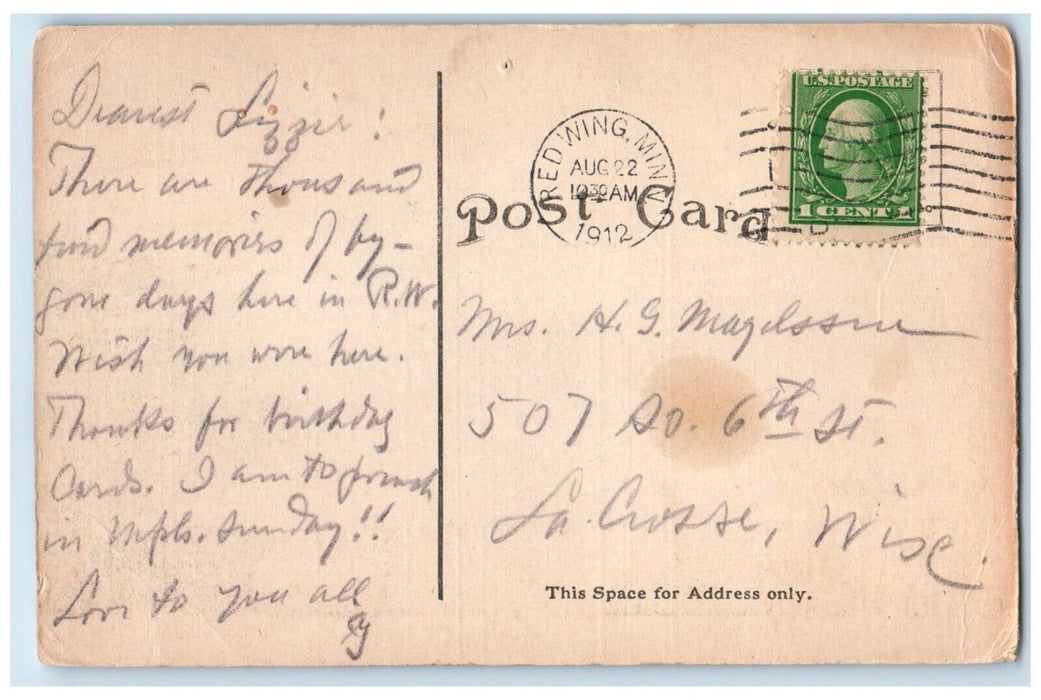 Dearest Lizzie!
There are thousand
fond memories of by-
gone days here in R.W.
Wish you were here.
Thanks for birthday
Cards. I am to preach
in Mpls. Sunday!!
Love to you all
RED WING, MINN
AUG 22
10 30 AM
1912
U.S. POSTAGE
1 CENT 1
D
Post Card
Mrs. H. G. Magelssen
507 So. 6th St.
La Crosse, Wisc.
This Space for Address only.